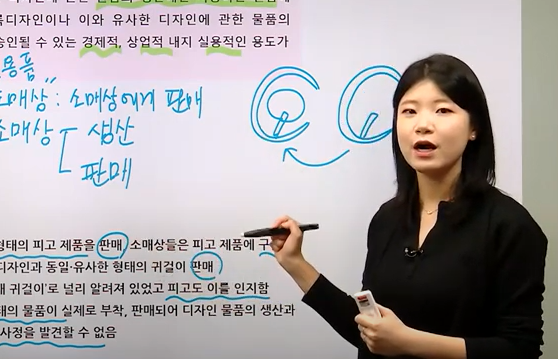 록디자인이나 이와 유사한 디자인에 관한 물품의
승인될 수 있는 경제적, 상업적 내지 실용적인 용도가
용품
도매상 : 소매상에게 판매
소매상 생산
판매
형태의 피고 제품을 판매, 소매상들은 피고 제품에 구
디자인과 동일·유사한 형태의 귀걸이 판매
귀걸이'로 널리 알려져 있었고 피고도 이를 인지함
태의 물품이 실제로 부착, 판매되어 디자인 물품의 생산과
사정을 발견할 수 없음